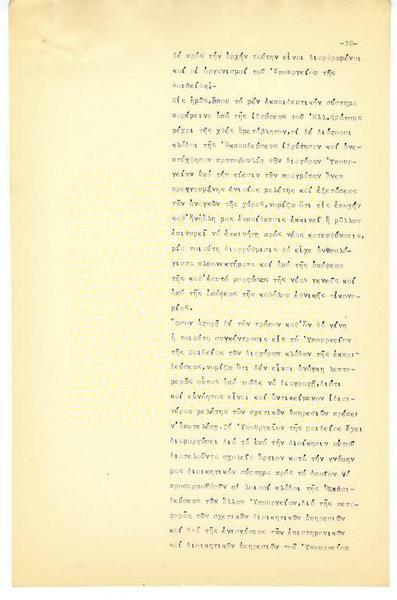 -12-
δέ πρός τήν ἀρχήν ταύτην εἶναι διαρθρωμένοι
καί οἱ ὀργανισμοί τοῦ Ὑπουργείου τῆς
Παιδείας.-
Εἰς ἡμᾶς, ὅπου τό μέν ἐκπαιδευτικόν σύστημα
παρέμεινε ἀπό τῆς ἱδρύσεως τοῦ Ἑλλ. Κράτους
μέχρι τῆς χθές ἀμετάβλητον, οἱ δέ διάφοροι
κλάδοι τῆς Ἐκπαιδεύσεως ἱδρύθησαν καί ἀνε-
πτύχθησαν πρωτοβουλίᾳ τῶν διαφόρων Ὑπουρ-
γείων ὑπό τήν πίεσιν τῶν πραγμάτων ἄνευ
προηγουμένης ἑνιαίας μελέτης καί ἐξετάσεως
τῶν ἀναγκῶν τῆς χώρας, νομίζω ὅτι εἰς ἐποχήν
καθ' ἥν ὅλη μας ἐκπαίδευσις ἐκκινεῖ ἤ μᾶλλον
ἐπιθυμεῖ νά ἐκκινήσῃ πρός νέας κατευθύνσεις,
μία τοιαύτη διαρρύθμισις θά εἶχε ἀνυπολό-
γιστα πλεονεκτήματα καί ἀπό τῆς ἀπόψεως
τῆς καθ' ἑαυτό μορφώσεως τῆς νέας γενεᾶς καί
ἀπό τῆς ἀπόψεως τῆς καθόλου ἐθνικῆς οἰκονο-
μίας.
Ὅσον ἀφορᾷ δέ τόν τρόπον καθ' ὅν θά γίνῃ
ἡ τοιαύτη συγκέντρωσις εἰς τό Ὑπουργεῖον
τῆς Παιδείας τῶν διαφόρων κλάδων τῆς ἐκπαι-
δεύσεως, νομίζω ὅτι δέν εἶναι ἀνάγκη λεπτο-
μερῶς οὗτος ἀπό τοῦδε νά διαγραφῇ, διότι
καί εὐνόητος εἶναι καί ἀντικείμενον ἰδιαι-
τέρας μελέτης τῶν σχετικῶν ὑπηρεσιῶν πρέπει
ν' ἀποτελέσῃ. Τό Ὑπουργεῖον τῆς Παιδείας ἔχει
διαμορφώσει διά τά ὑπό τήν διοίκησιν αὐτοῦ
διατελοῦντα σχολεῖα ἄρτιον κατά τήν γνώμην
μας διοικητικόν σύστημα πρός τό ὁποῖον θά
προσαρμοσθοῦν οἱ λοιποί κλάδοι τῆς ἐκπαι-
δεύσεως τῶν ἄλλων Ὑπουργείων, διά τῆς μετα-
φορᾶς τῶν σχετικῶν διοικητικῶν ὑπηρεσιῶν
καί διά τῆς ἐνισχύσεως τῶν ἐπιστημονικῶν
καί διοικητικῶν ὑπηρεσιῶν τοῦ Ὑπουργείου